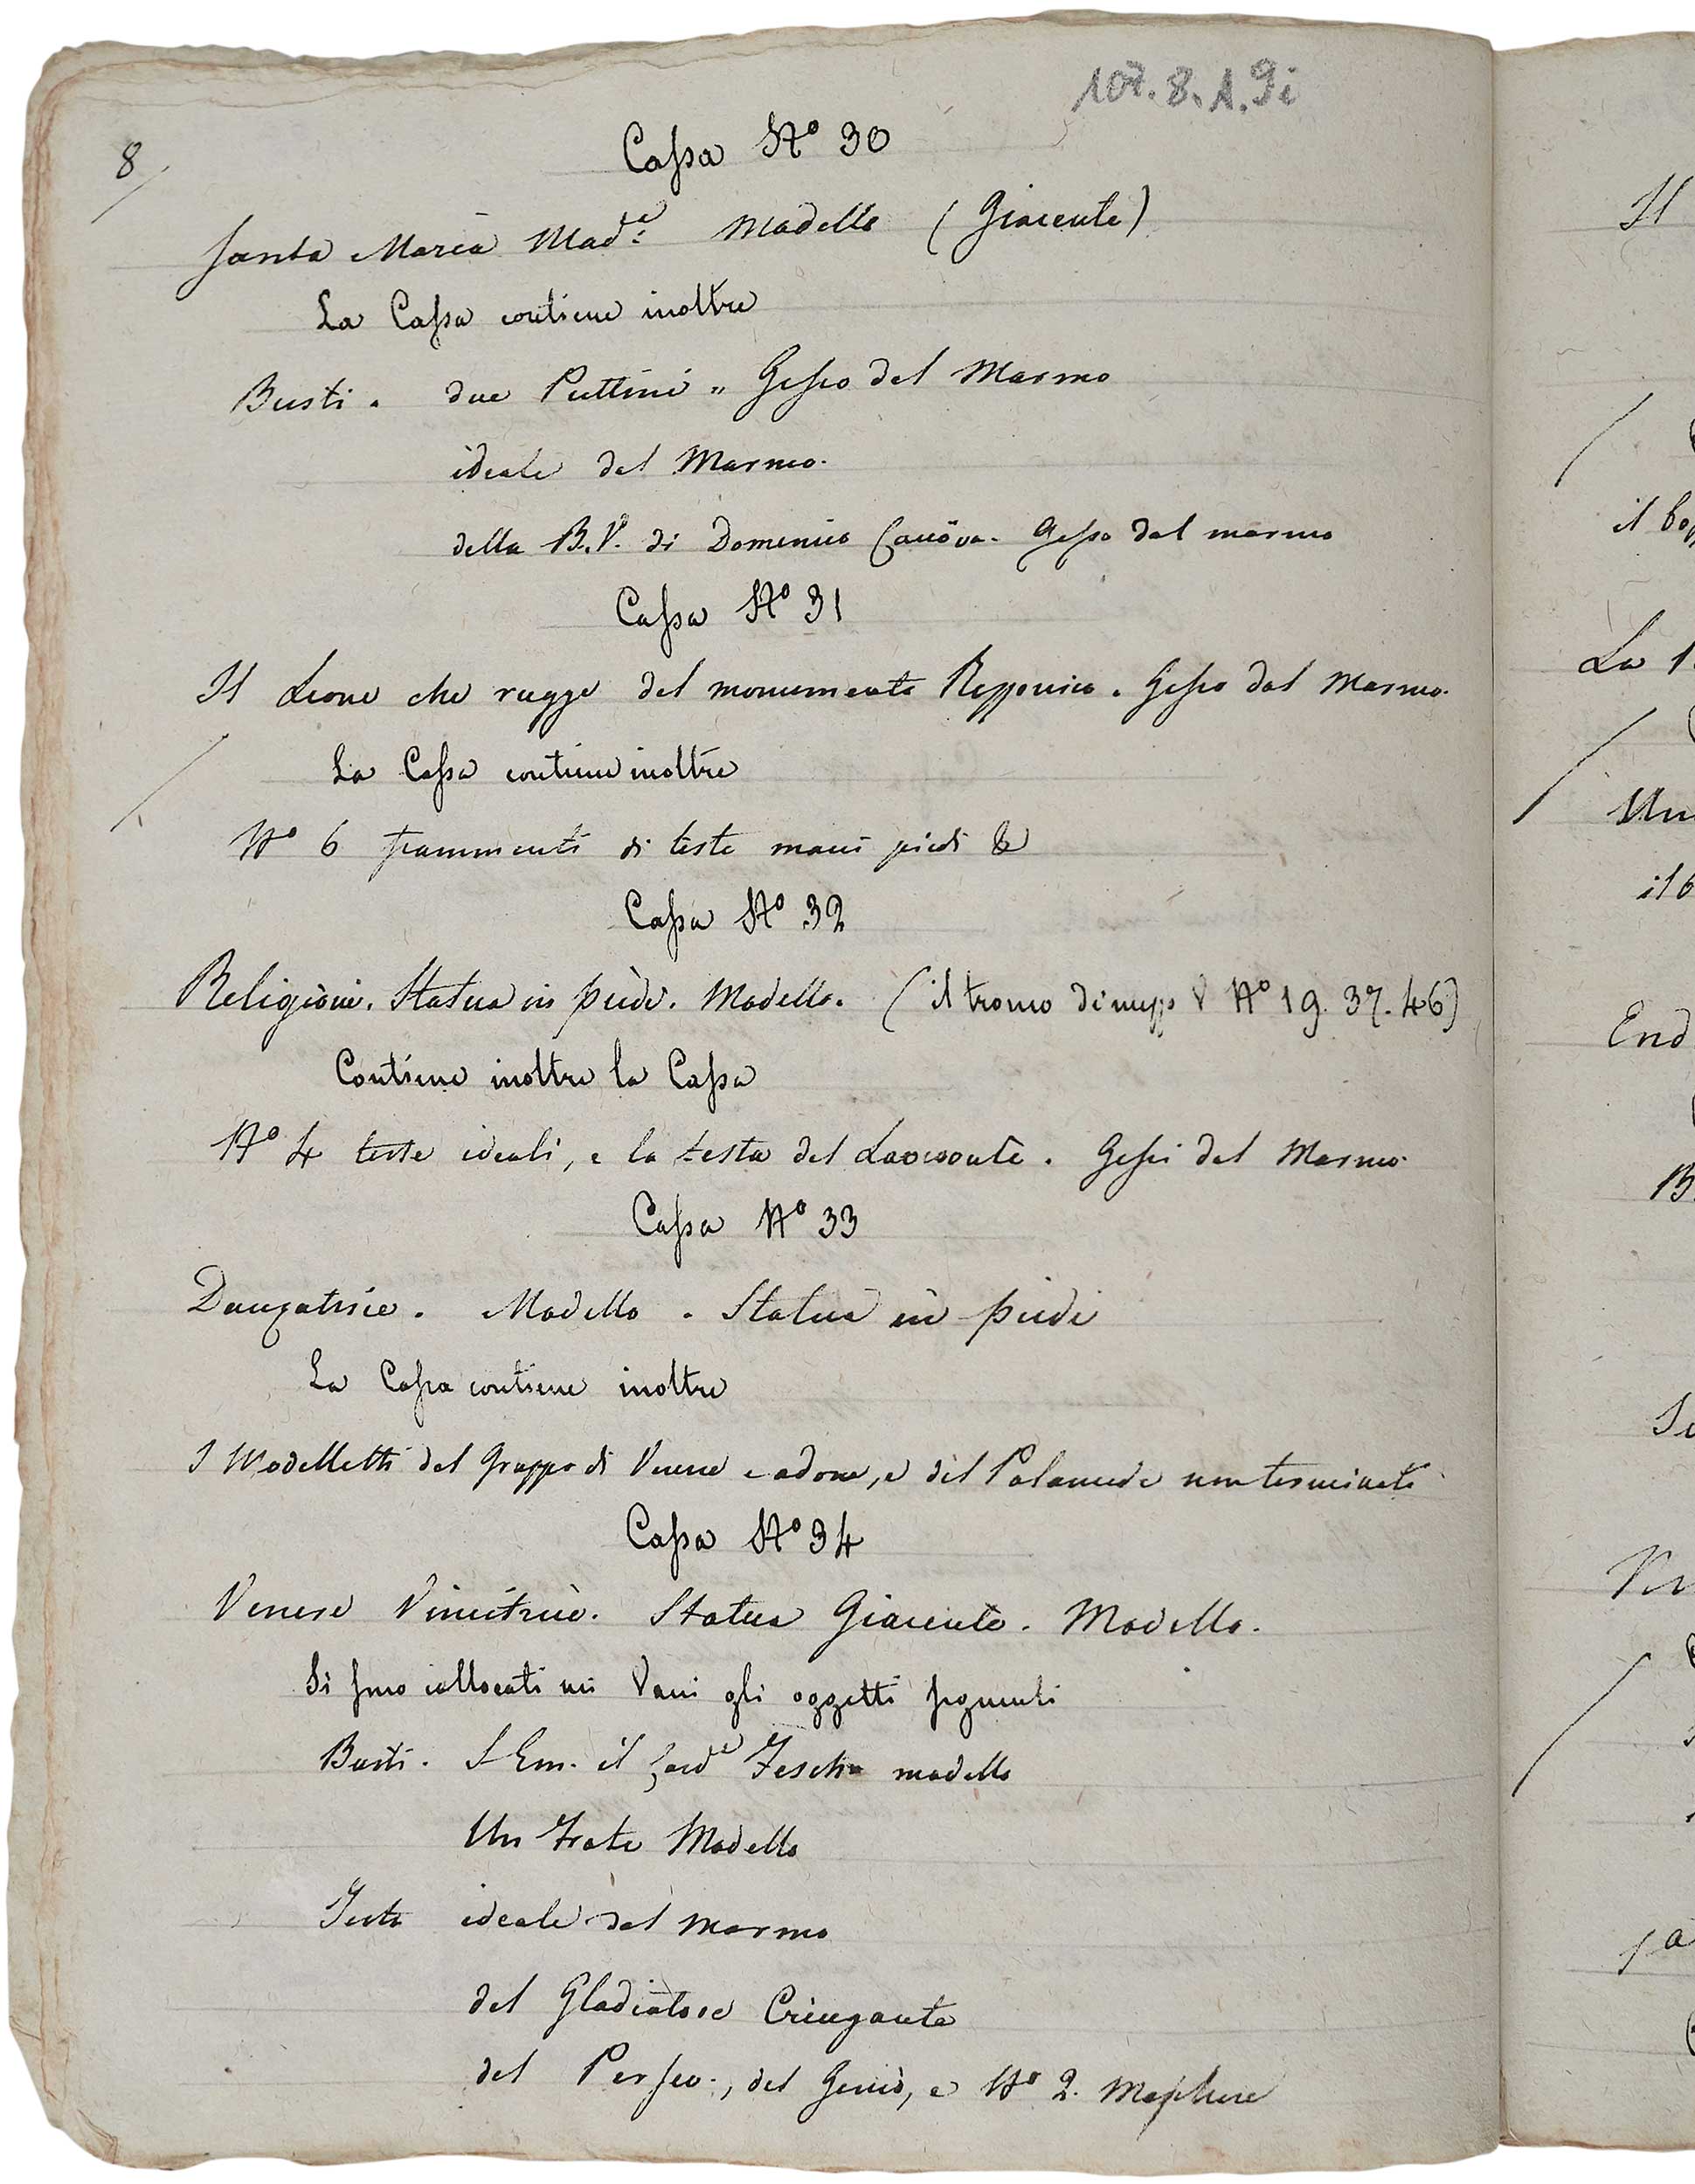 107. 8. A. 9i
8
Cassa N° 30
Santa Maria Mad.e Modello (Giacente)
La Cassa contiene inoltre
Busti. due Puttini „ Gesso dal Marmo
ideale dal Marmo.
della B.V. di Domenico Canova. Gesso dal marmo
Cassa N° 31
Il Leone che rugge del monumento Rezzonico. Gesso dal Marmo.
La Cassa contiene inoltre
N° 6 frammenti di teste mani piedi &
Cassa N° 32
Religione. Statua in piedi. Modello. (il tronco di mezzo V N° 19. 37. 46)
Contiene inoltre la Cassa
N° 4 teste ideali, e la testa del Laocoonte. Gessi dal Marmo.
Cassa N° 33
Danzatrice. Modello. Statua in piedi
La Cassa contiene inoltre
I Modelletti del Gruppo di Venere e adone, e del Palamede non terminati
Cassa N° 34
Venere Vincitrice. Statua Giacente. Modello.
Si sono collocati nei Vani gli oggetti seguenti
Busti. S Em. il Card.e Fesch modello
Un Frate Modello
Teste ideale dal marmo
del Gladiatore Creugante
del Perseo., del Genio, e N° 2. Maschere
Il
il
La
Un
il
End
B
Se
Ve